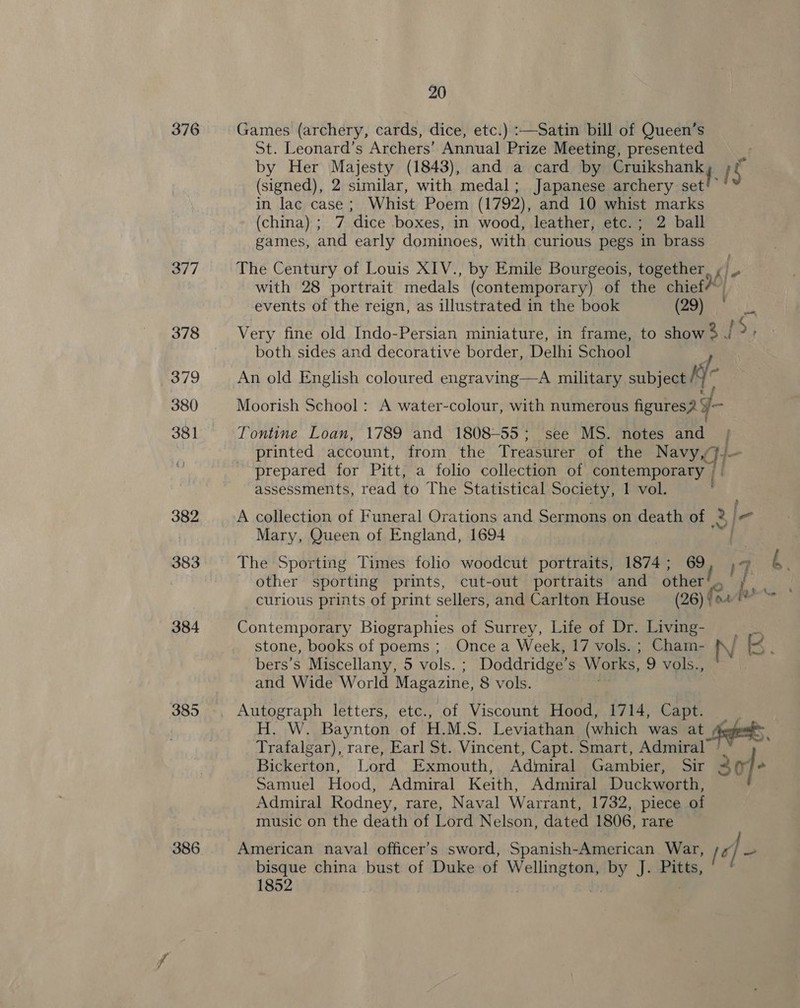 20
376 Games (archery, cards, dice, etc.) :—Satin bill of Queen's
St. Leonard's Archers' Annual Prize Meeting, presented
by Her Majesty (1843), and a card by Cruikshank
(signed), 2 similar, with medal; Japanese archery set
in lac case; Whist Poem (1792), and 10 whist marks
(china); 7 dice boxes, in wood, leather, etc.; 2 ball
games, and early dominoes, with curious pegs in brass
377 The Century of Louis XIV., by Emile Bourgeois, together
with 28 portrait medals (contemporary) of the chief
events of the reign, as illustrated in the book (29)
378 Very fine old Indo-Persian miniature, in frame, to show
both sides and decorative border, Delhi School
379 An old English coloured engraving—A military subject
380 Moorish School: A water-colour, with numerous figures
381 Tontine Loan, 1789 and 1808-55; see MS. notes and
printed account, from the Treasurer of the Navy,
prepared for Pitt, a folio collection of contemporary
assessments, read to The Statistical Society, 1 vol.
382 A collection of Funeral Orations and Sermons on death of
Mary, Queen of England, 1694
383 The Sporting Times folio woodcut portraits, 1874; 69,
other sporting prints, cut-out portraits and other
curious prints of print sellers, and Carlton House (26)
384 Contemporary Biographies of Surrey, Life of Dr. Living-
stone, books of poems; Once a Week, 17 vols.; Cham-
bers's Miscellany, 5 vols.; Doddridge's Works, 9 vols.,
and Wide World Magazine, 8 vols.
385 Autograph letters, etc., of Viscount Hood, 1714, Capt.
H. W. Baynton of H.M.S. Leviathan (which was at
Trafalgar), rare, Earl St. Vincent, Capt. Smart, Admiral
Bickerton, Lord Exmouth, Admiral Gambier, Sir
Samuel Hood, Admiral Keith, Admiral Duckworth,
Admiral Rodney, rare, Naval Warrant, 1732, piece of
music on the death of Lord Nelson, dated 1806, rare
386 American naval officer's sword, Spanish-American War,
bisque china bust of Duke of Wellington, by J. Pitts,
1852